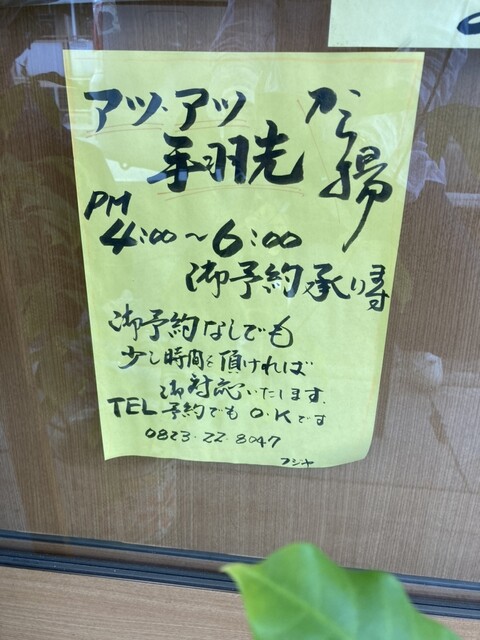 アツ、アツ
手羽先
から揚
PM
4:00～6:00
御予約承り〼
御予約なしでも
少し時間を頂ければ
御対応いたします。
TEL予約でもO.Kです
0823-22-8047
フジヤ